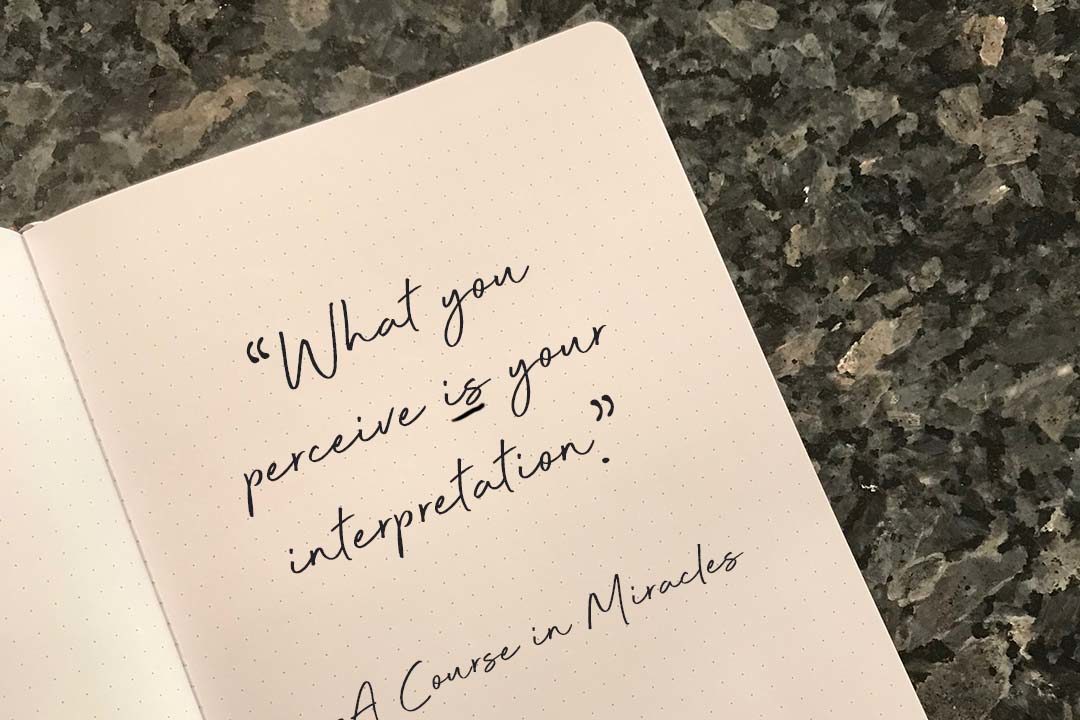 “What you
perceive is your
interpretation”.
A Course in Miracles